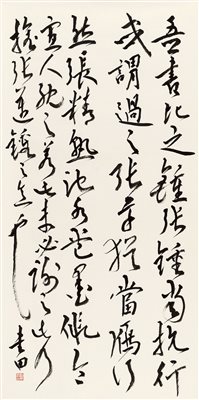 吾書比之鍾張鍾當抗行
或謂過之張草猶當雁行
然張精熟池水盡墨假令
寡人耽之若此未必謝之此乃
推張邁鍾之意也